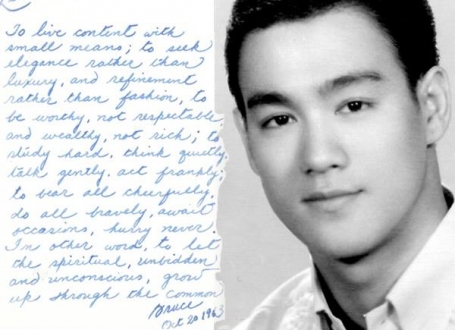 To live content with
small means; to seek
elegance rather than
luxury, and refinement
rather than fashion, to
be worthy, not respectable,
and wealthy, not rich; to
study hard, think quietly,
talk gently, act frankly;
to bear all cheerfully,
do all bravely, await
occasions, hury never.
In other word, to let
the spiritual, unbidden
and unconscious, grow
up through the common
Bruce
Oct 20 1963